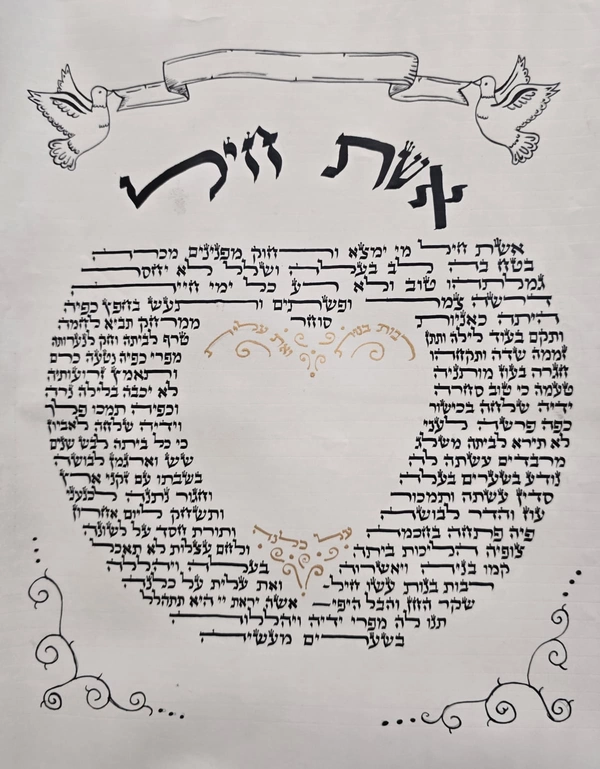 אשת חיל
אשת חיל מי ימצא ורחוק מפנינים מכרה
בטח בה לב בעלה ושלל לא יחסר
גמלתהו טוב ולא רע כל ימי חייה
דרשה צמר ופשתים ותעש בחפץ כפיה
היתה כאניות סוחר ממרחק תביא לחמה
ותקם בעוד לילה ותתן טרף לביתה וחק לנערותיה
זממה שדה ותקחהו מפרי כפיה נטעה כרם
חגרה בעוז מותניה ותאמץ זרועותיה
טעמה כי טוב סחרה לא יכבה בלילה נרה
ידיה שלחה בכישור וכפיה תמכו פלך
כפה פרשה לעני וידיה שלחה לאביון
לא תירא לביתה משלג כי כל ביתה לבש שנים
מרבדים עשתה לה שש וארגמן לבושה
נודע בשערים בעלה בשבתו עם זקני ארץ
סדין עשתה ותמכור וחגור נתנה לכנעני
עוז והדר לבושה ותשחק ליום אחרון
פיה פתחה בחכמה ותורת חסד על לשונה
צופיה הליכות ביתה ולחם עצלות לא תאכל
קמו בניה ויאשרוה בעלה ויהללה
רבות בנות עשו חיל- ואת עלית על כלנה
שקר החן והבל היפי– אשה יראת יי היא תתהלל
תנו לה מפרי ידיה ויהללוה
בשערים מעשיה
רבות בנות ואת עלית
על כלנה